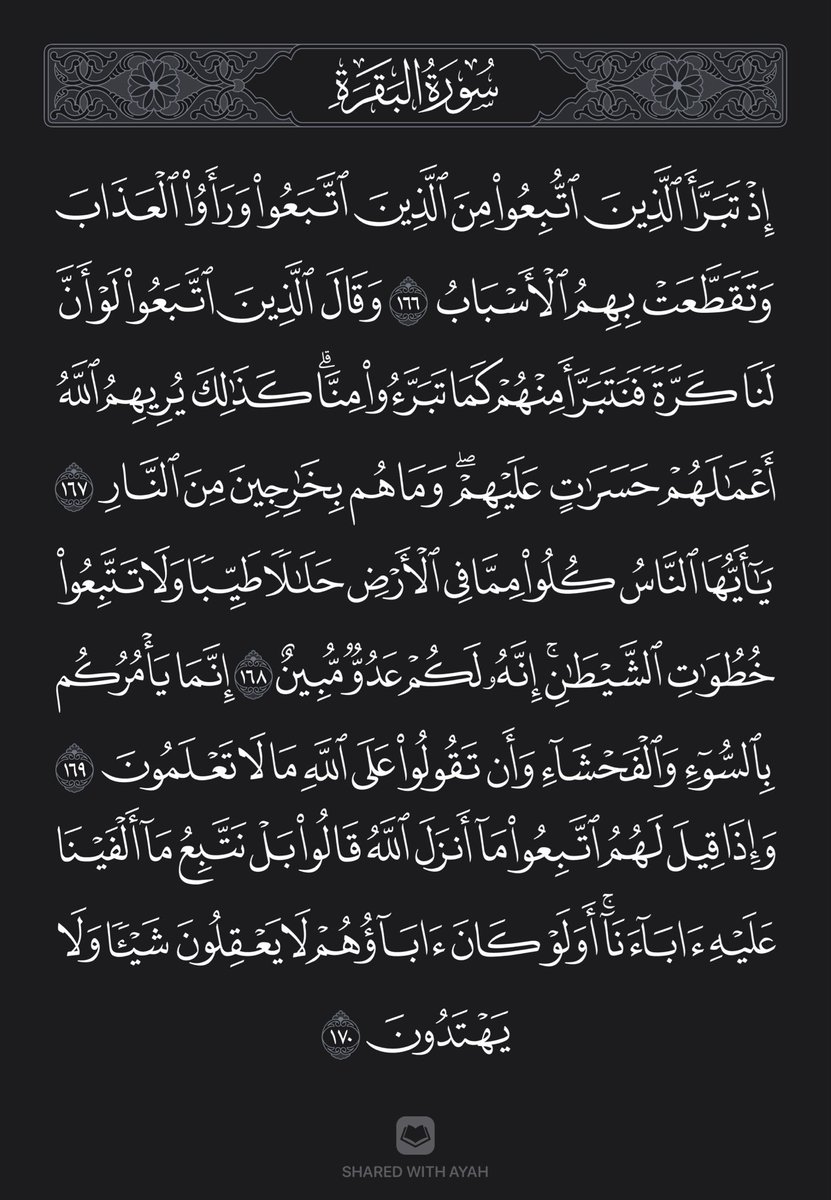 سُورَةُ البَقَرَةِ
إِذْ تَبَرَّأَ ٱلَّذِينَ ٱتُّبِعُوا۟ مِنَ ٱلَّذِينَ ٱتَّبَعُوا۟ وَرَأَوُا۟ ٱلْعَذَابَ
وَتَقَطَّعَتْ بِهِمُ ٱلْأَسْبَابُ ١٦٦ وَقَالَ ٱلَّذِينَ ٱتَّبَعُوا۟ لَوْ أَنَّ
لَنَا كَرَّةً فَنَتَبَرَّأَ مِنْهُمْ كَمَا تَبَرَّءُوا۟ مِنَّا ۗ كَذَٰلِكَ يُرِيهِمُ ٱللَّهُ
أَعْمَـٰلَهُمْ حَسَرَٰتٍ عَلَيْهِمْ ۖ وَمَا هُم بِخَـٰرِجِينَ مِنَ ٱلنَّارِ ١٦٧
يَـٰٓأَيُّهَا ٱلنَّاسُ كُلُوا۟ مِمَّا فِى ٱلْأَرْضِ حَلَـٰلًا طَيِّبًا وَلَا تَتَّبِعُوا۟
خُطُوَٰتِ ٱلشَّيْطَـٰنِ ۚ إِنَّهُۥ لَكُمْ عَدُوٌّ مُّبِينٌ ١٦٨ إِنَّمَا يَأْمُرُكُم
بِٱلسُّوٓءِ وَٱلْفَحْشَآءِ وَأَن تَقُولُوا۟ عَلَى ٱللَّهِ مَا لَا تَعْلَمُونَ ١٦٩
وَإِذَا قِيلَ لَهُمُ ٱتَّبِعُوا۟ مَآ أَنزَلَ ٱللَّهُ قَالُوا۟ بَلْ نَتَّبِعُ مَآ أَلْفَيْنَا
عَلَيْهِ ءَابَآءَنَآ ۚ أَوَلَوْ كَانَ ءَابَآؤُهُمْ لَا يَعْقِلُونَ شَيْـًٔا وَلَا
يَهْتَدُونَ ١٧٠
SHARED WITH AYAH